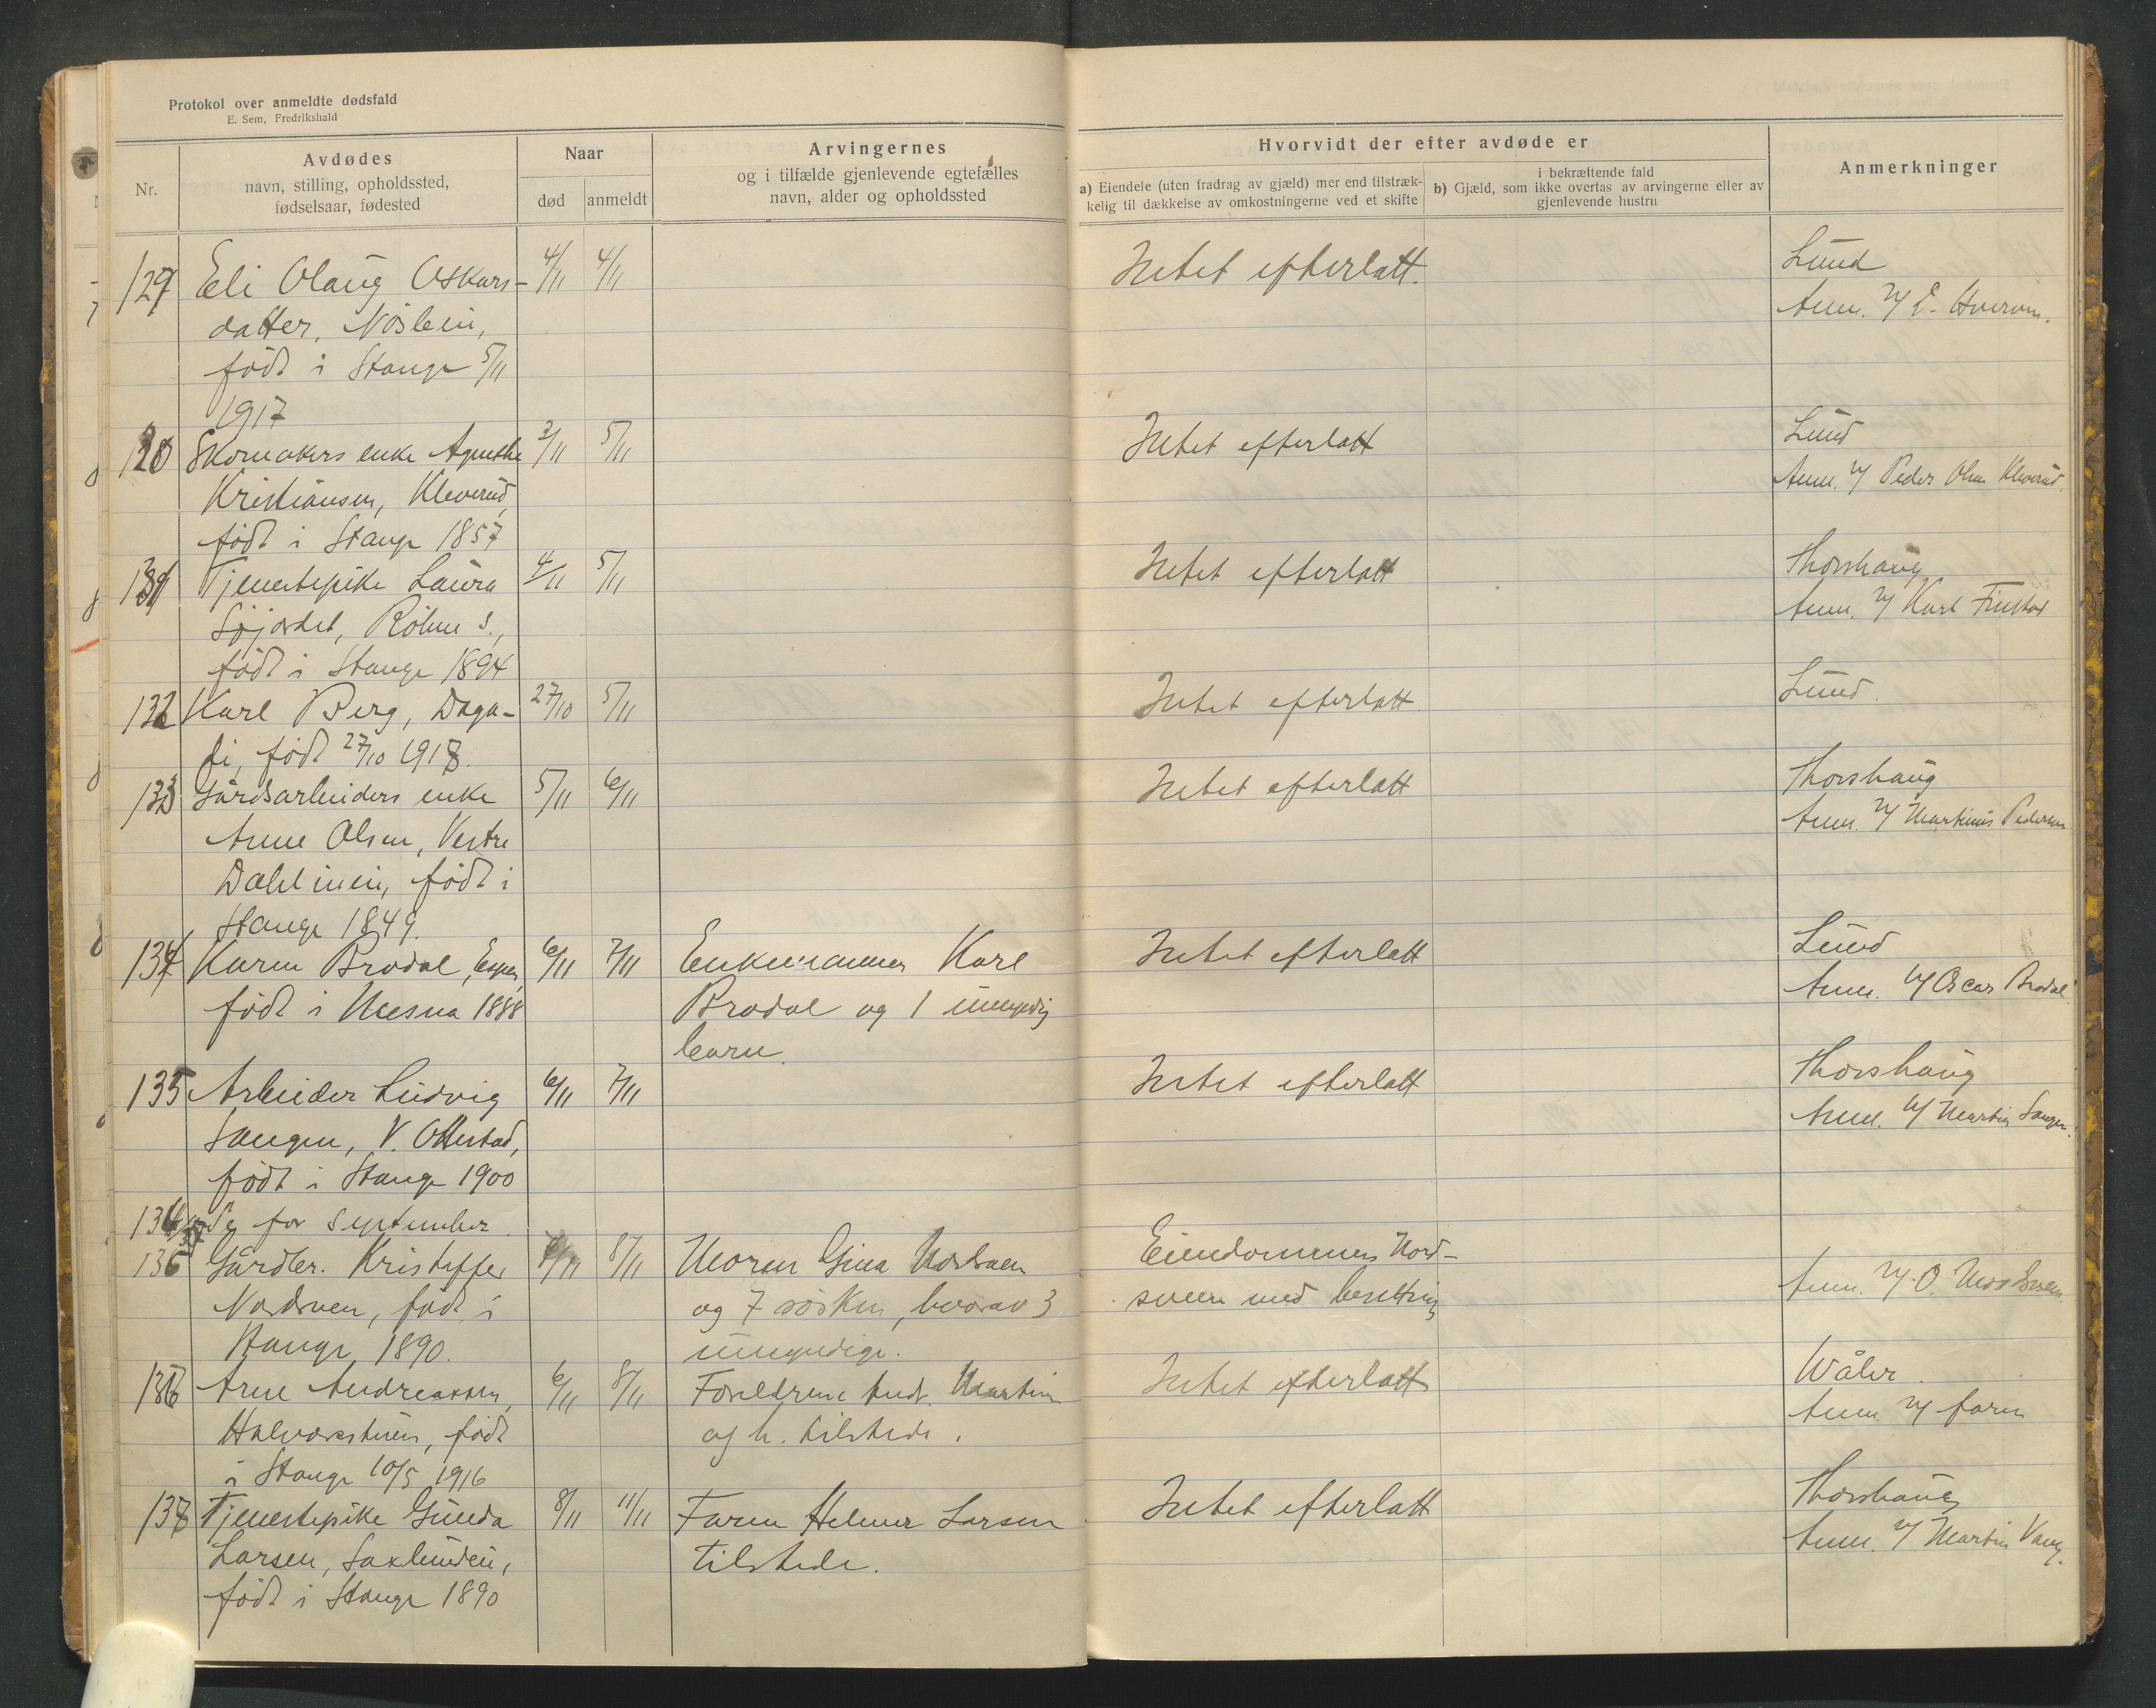 Protokol over anmeldte dødsfald
E. Sem, Fredrikshald
Nr.
Avdødes
navn, stilling, opholdssted,
fødselsaar, fødested
Naar
død
anmeldt
Arvingernes
og i tilfælde gjenlevende egtefælles
navn, alder og opholdssted
Hvorvidt der efter avdøde er
a) Eiendele (uten fradrag av gjæld) mer end tilstræk-
kelig til dækkelse av omkostningerne ved et skifte
i bekræftende fald
b) Gjæld, som ikke overtas av arvingerne eller av
gjenlevende hustru
Anmerkninger
129 Eli Olaug Oskars- 4/11 4/11 Intet efterlatt. Lund
datter, Nöslein, Anm. v/ E.
født i Stange 5/11
1917
Skomakers enke Agnethe 3/11 5/11 Intet efterlatt Lund
Kristiansen, Kleverud, Anm. v/ Peder Olsen Kleverud.
født i Stange 1857
Tjenestepike Laura 4/11 5/11 Intet efterlatt Thorshaug
Søjordet, Röhne s., Anm. v/ Karl Finstad
født i Stange 1894
132 Karl Berg, Daga- 27/10 5/11 Intet efterlatt Lund.
li, født 27/10 1918.
133 Gårdsarbeiders enke 5/11 6/11 Intet efterlatt Thorshaug
Anne Olsen, Vestre Anm. v/ Martinus Pedersen
født i
Stange 1849.
134 Karen Brodal, Espen, 6/11 7/11 Enkemannen Karl Intet efterlatt Lund
født i Nesna 1888 Brodal og 1 umyndig Anm. v/ Oscar Brodal.
barn.
135 Arbeider Ludvig 6/11 7/11 Intet efterlatt Thorshaug
Sangen, V. Ottestad, Anm. v/ Martin Sangen.
født i Stange 1900
Se for September.
136 Gårdbr. Kristoffer 8/11 Moren Gina Nordsveen Eiendommen Nord-
Nordsveen, født i og 7 søsken, hvorav 3 sveen med besetning Anm. v/ O. Nordsveen.
Stange 1890. umyndige.
136 Arne Andreassen, 6/11 8/11 Foreldrene Andr. Martin Intet efterlatt Wåler.
Halvorsstuen, født og h. tilstede. Anm. v/ faren
i Stange 10/5 1916
137 Tjenestepike Gunda 8/11 11/11 Faren Helmer Larsen Intet efterlatt Thorshaug
Larsen, Saxlunden, tilstede. Anm. v/ Martin Vang.
født i Stange 1890